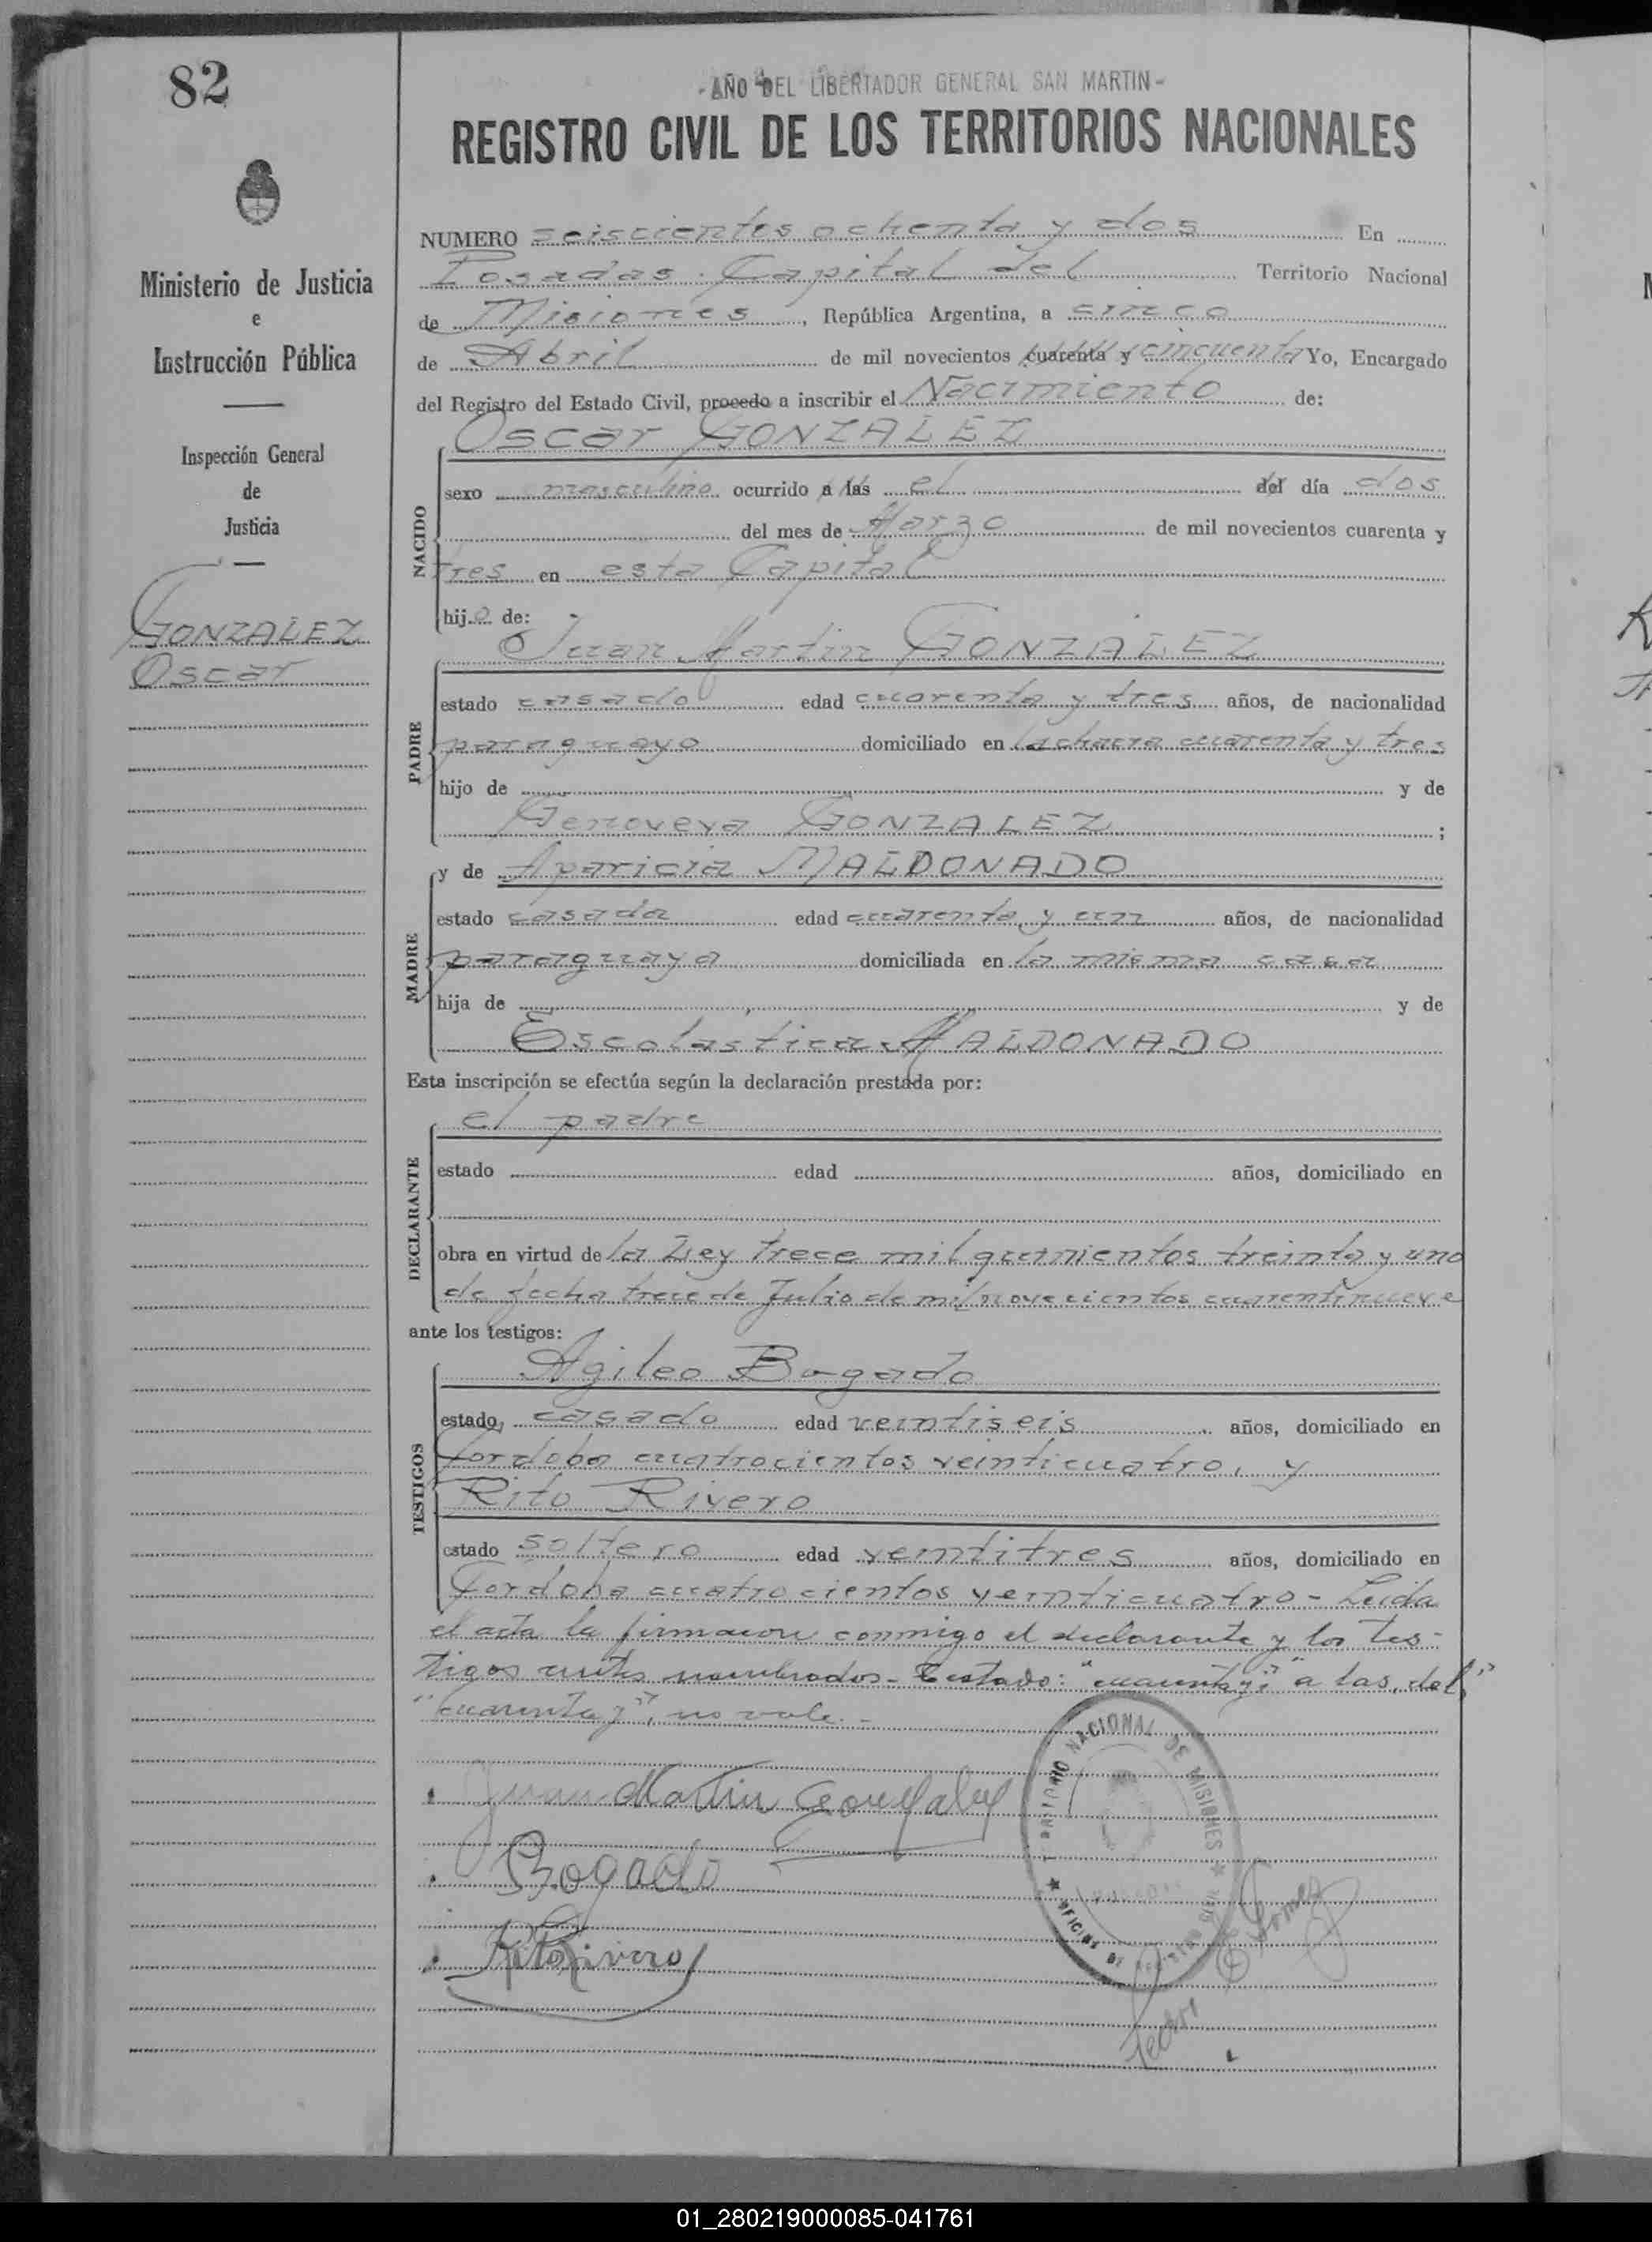 82
- AÑO DEL LIBERTADOR GENERAL SAN MARTIN -
REGISTRO CIVIL DE LOS TERRITORIOS NACIONALES
Ministerio de Justicia
e
Instrucción Pública
Inspección General
de
Justicia
GONZALEZ
Oscar
NUMERO seiscientos ochenta y dos En
Posadas. Capital del Territorio Nacional
de Misiones, República Argentina, a cinco
de Abril de mil novecientos cuarenta y cincuenta Yo, Encargado
del Registro del Estado Civil, procedo a inscribir el Nacimiento de:
Oscar GONZALEZ
NACIDO
sexo masculino ocurrido a las el del día dos
del mes de Marzo de mil novecientos cuarenta y
tres en esta Capital
hijo de:
Juan Martin GONZALEZ
PADRE
estado casado edad cuarenta y tres años, de nacionalidad
paraguayo domiciliado en la chacra cuarenta y tres
hijo de y de
Genoveva GONZALEZ ;
y de Aparicia MALDONADO
MADRE
estado casada edad cuarenta y un años, de nacionalidad
paraguaya domiciliada en la misma casa
hija de y de
Escolastica MALDONADO
Esta inscripción se efectúa según la declaración prestada por:
el padre
DECLARANTE
estado edad años, domiciliado en
obra en virtud de la Ley trece mil quinientos treinta y uno
de fecha trece de Julio de mil novecientos cuarentinueve
ante los testigos:
Agileo Bogado
TESTIGOS
estado casado edad veintiseis años, domiciliado en
Cordoba cuatrocientos veinticuatro, y
Rito Rivero
estado soltero edad veintitres años, domiciliado en
Cordoba cuatrocientos veinticuatro - Leida
el acta la firmaron conmigo el declarante y los tes-
tigos antes nombrados - Testado: "cuarenta y" "a las, del,"
"cuarenta y", no vale. -
Juan Martin Gonzalez
Bogado
Rito Rivero
TERRITORIO NACIONAL DE MISIONES
OFICINA DE REGISTRO
01_280219000085-041761